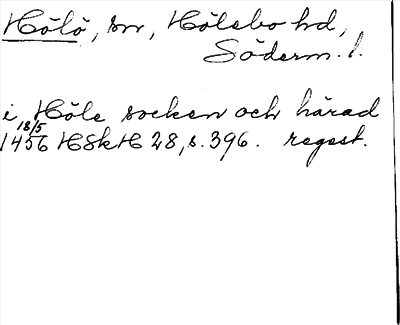 Hölö, sn, Hölebo hd,
Söderm. l.
i Höle socken och härad
18/5
1456 HSkH 28, s. 396. regest.